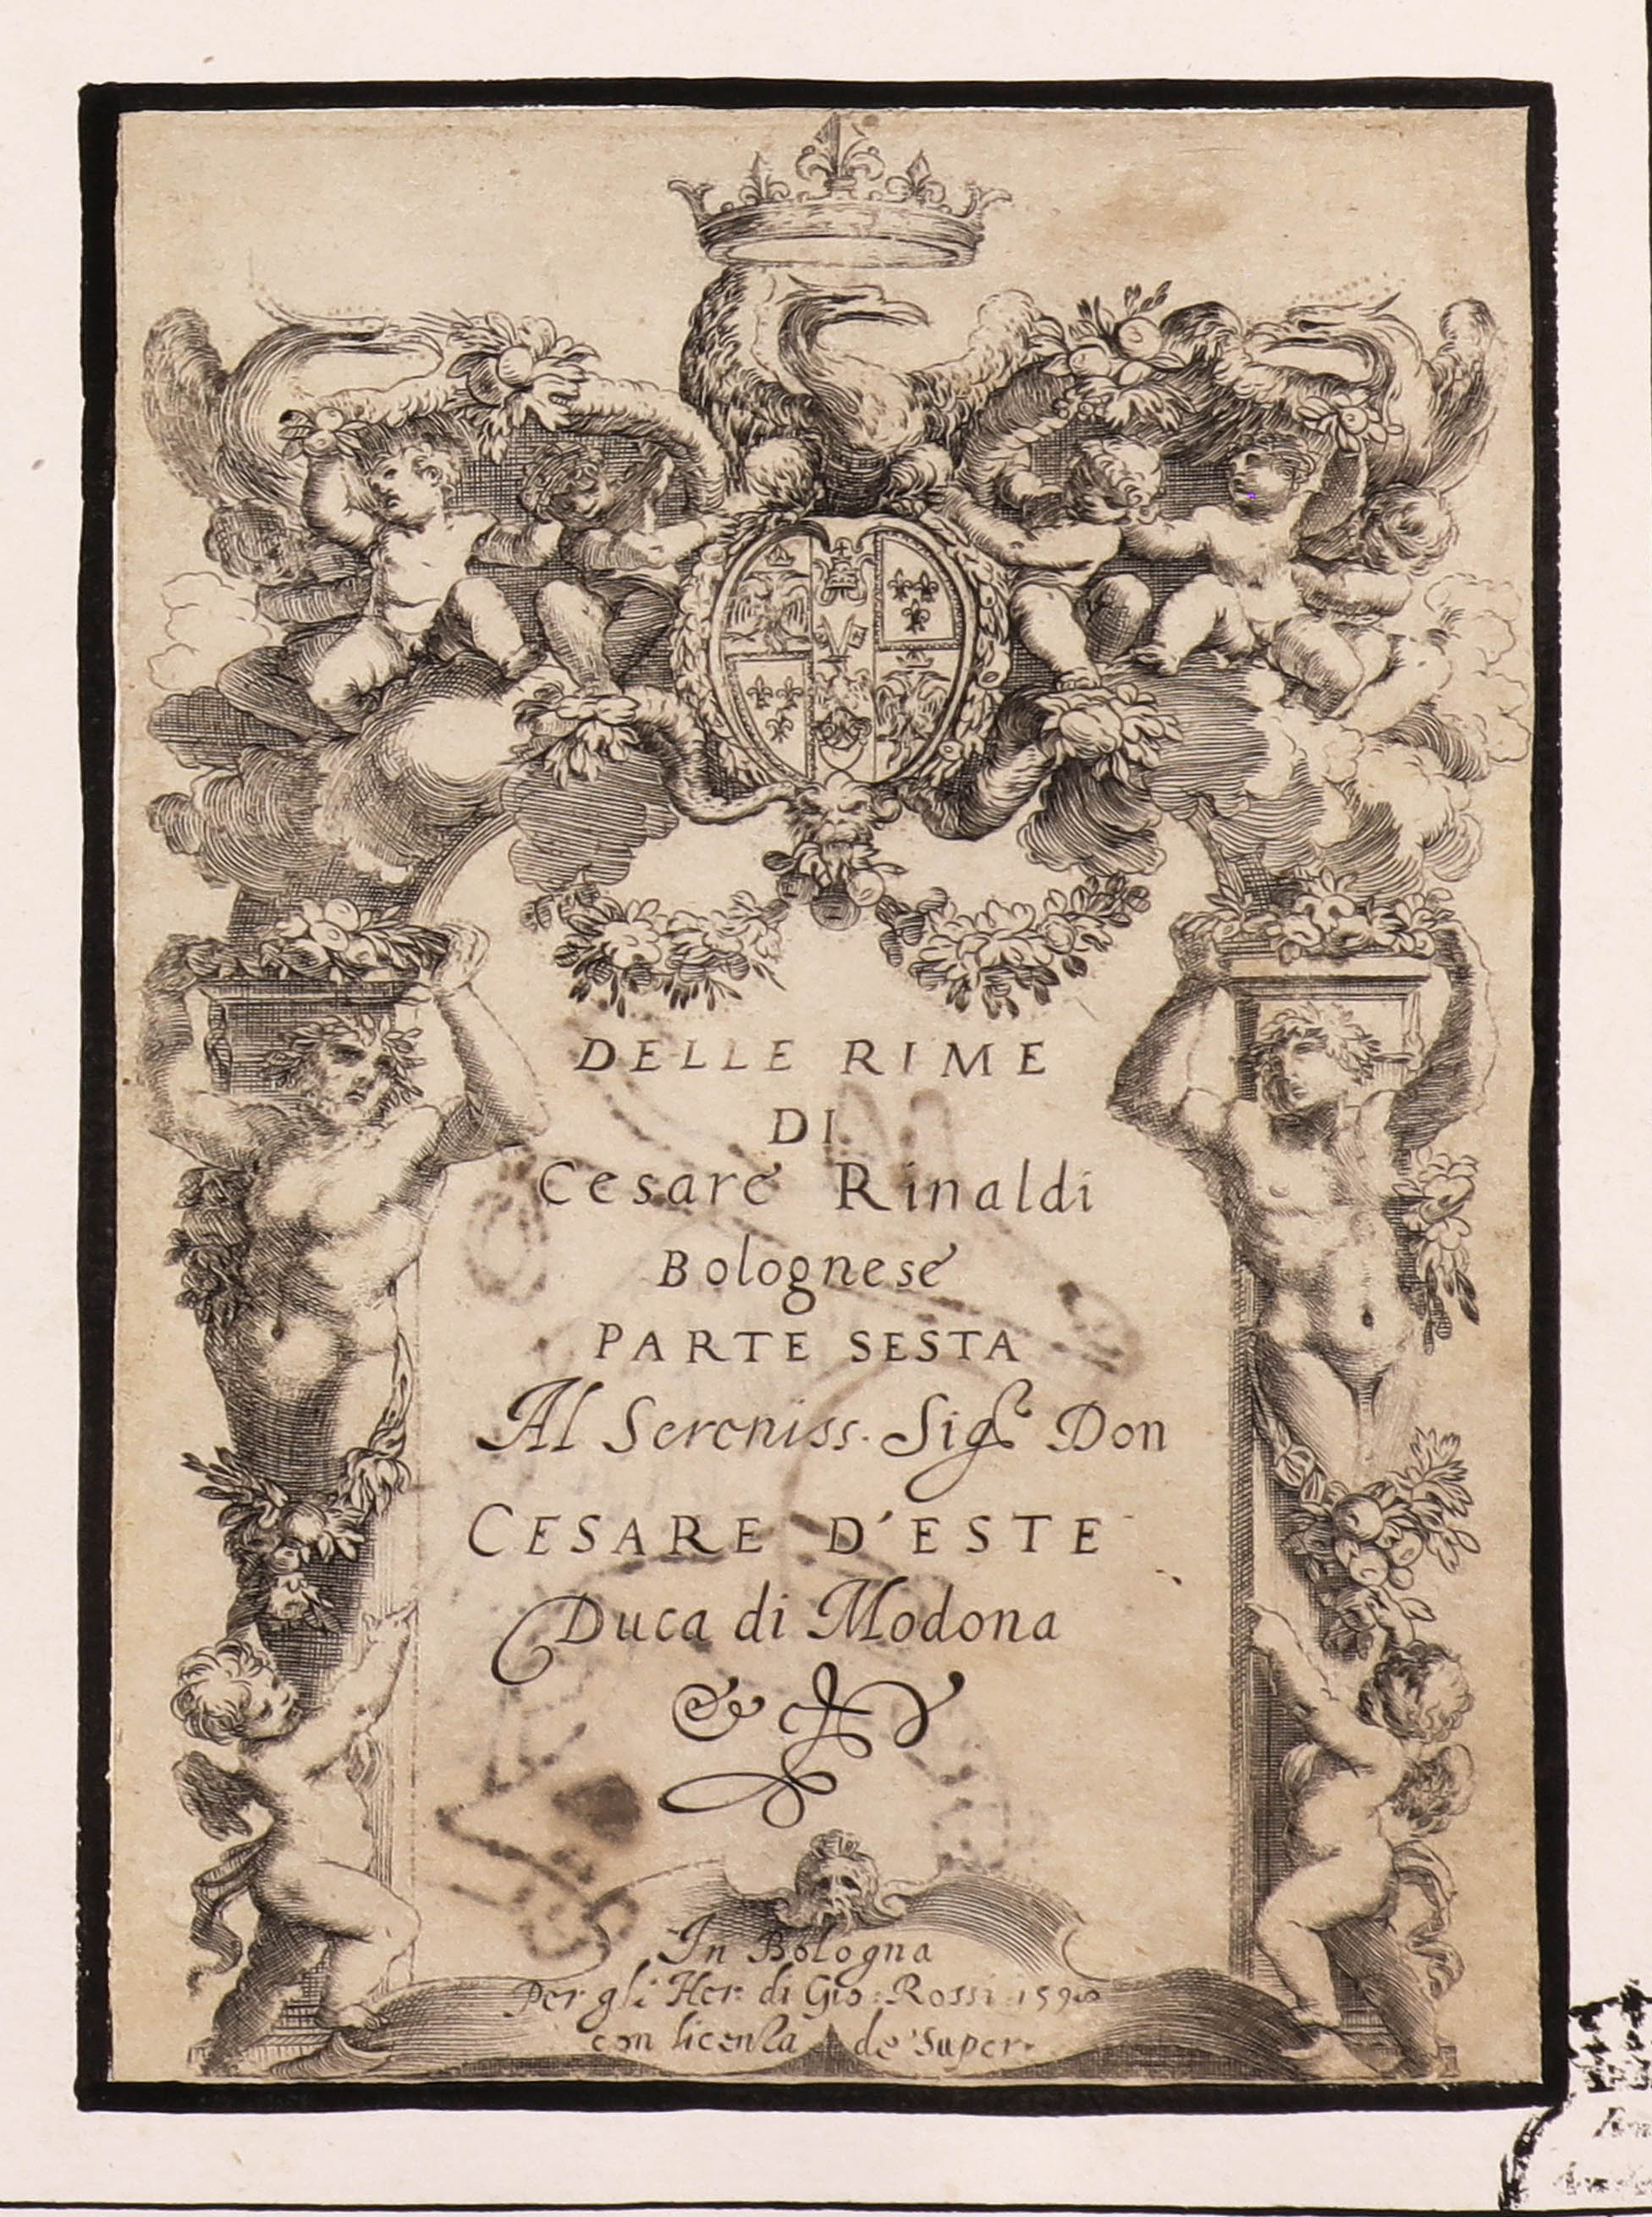 DELLE RIME
DI
Cesare Rinaldi
Bolognese
PARTE SESTA
Al Sereniss. Sig.r Don
CESARE D'ESTE
Duca di Modona
&
In Bologna
Per gli Her: di Gio: Rossi
con licenza de' Super.